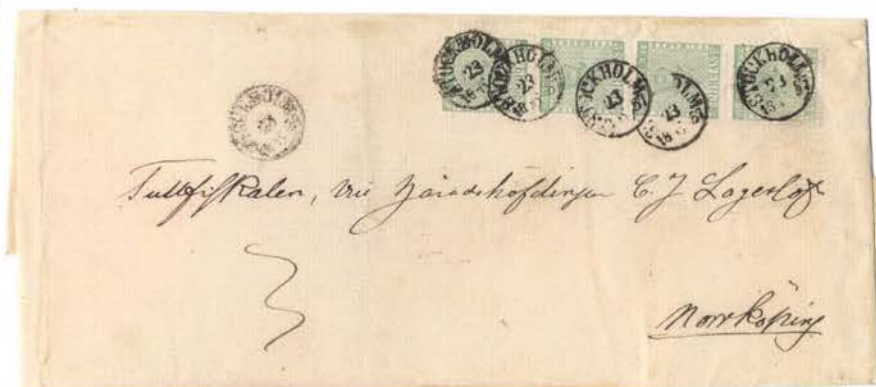 STOCKHOLM 23
STOCKHOLM 23
STOCKHOLM 23
STOCKHOLM 23
STOCKHOLM
STOCKHOLM
Tullfiskalen, Vice Häradshöfdingen C. J. Lagerlöf
Norrköping